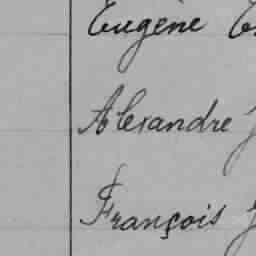 Eugène
Alexandre
François